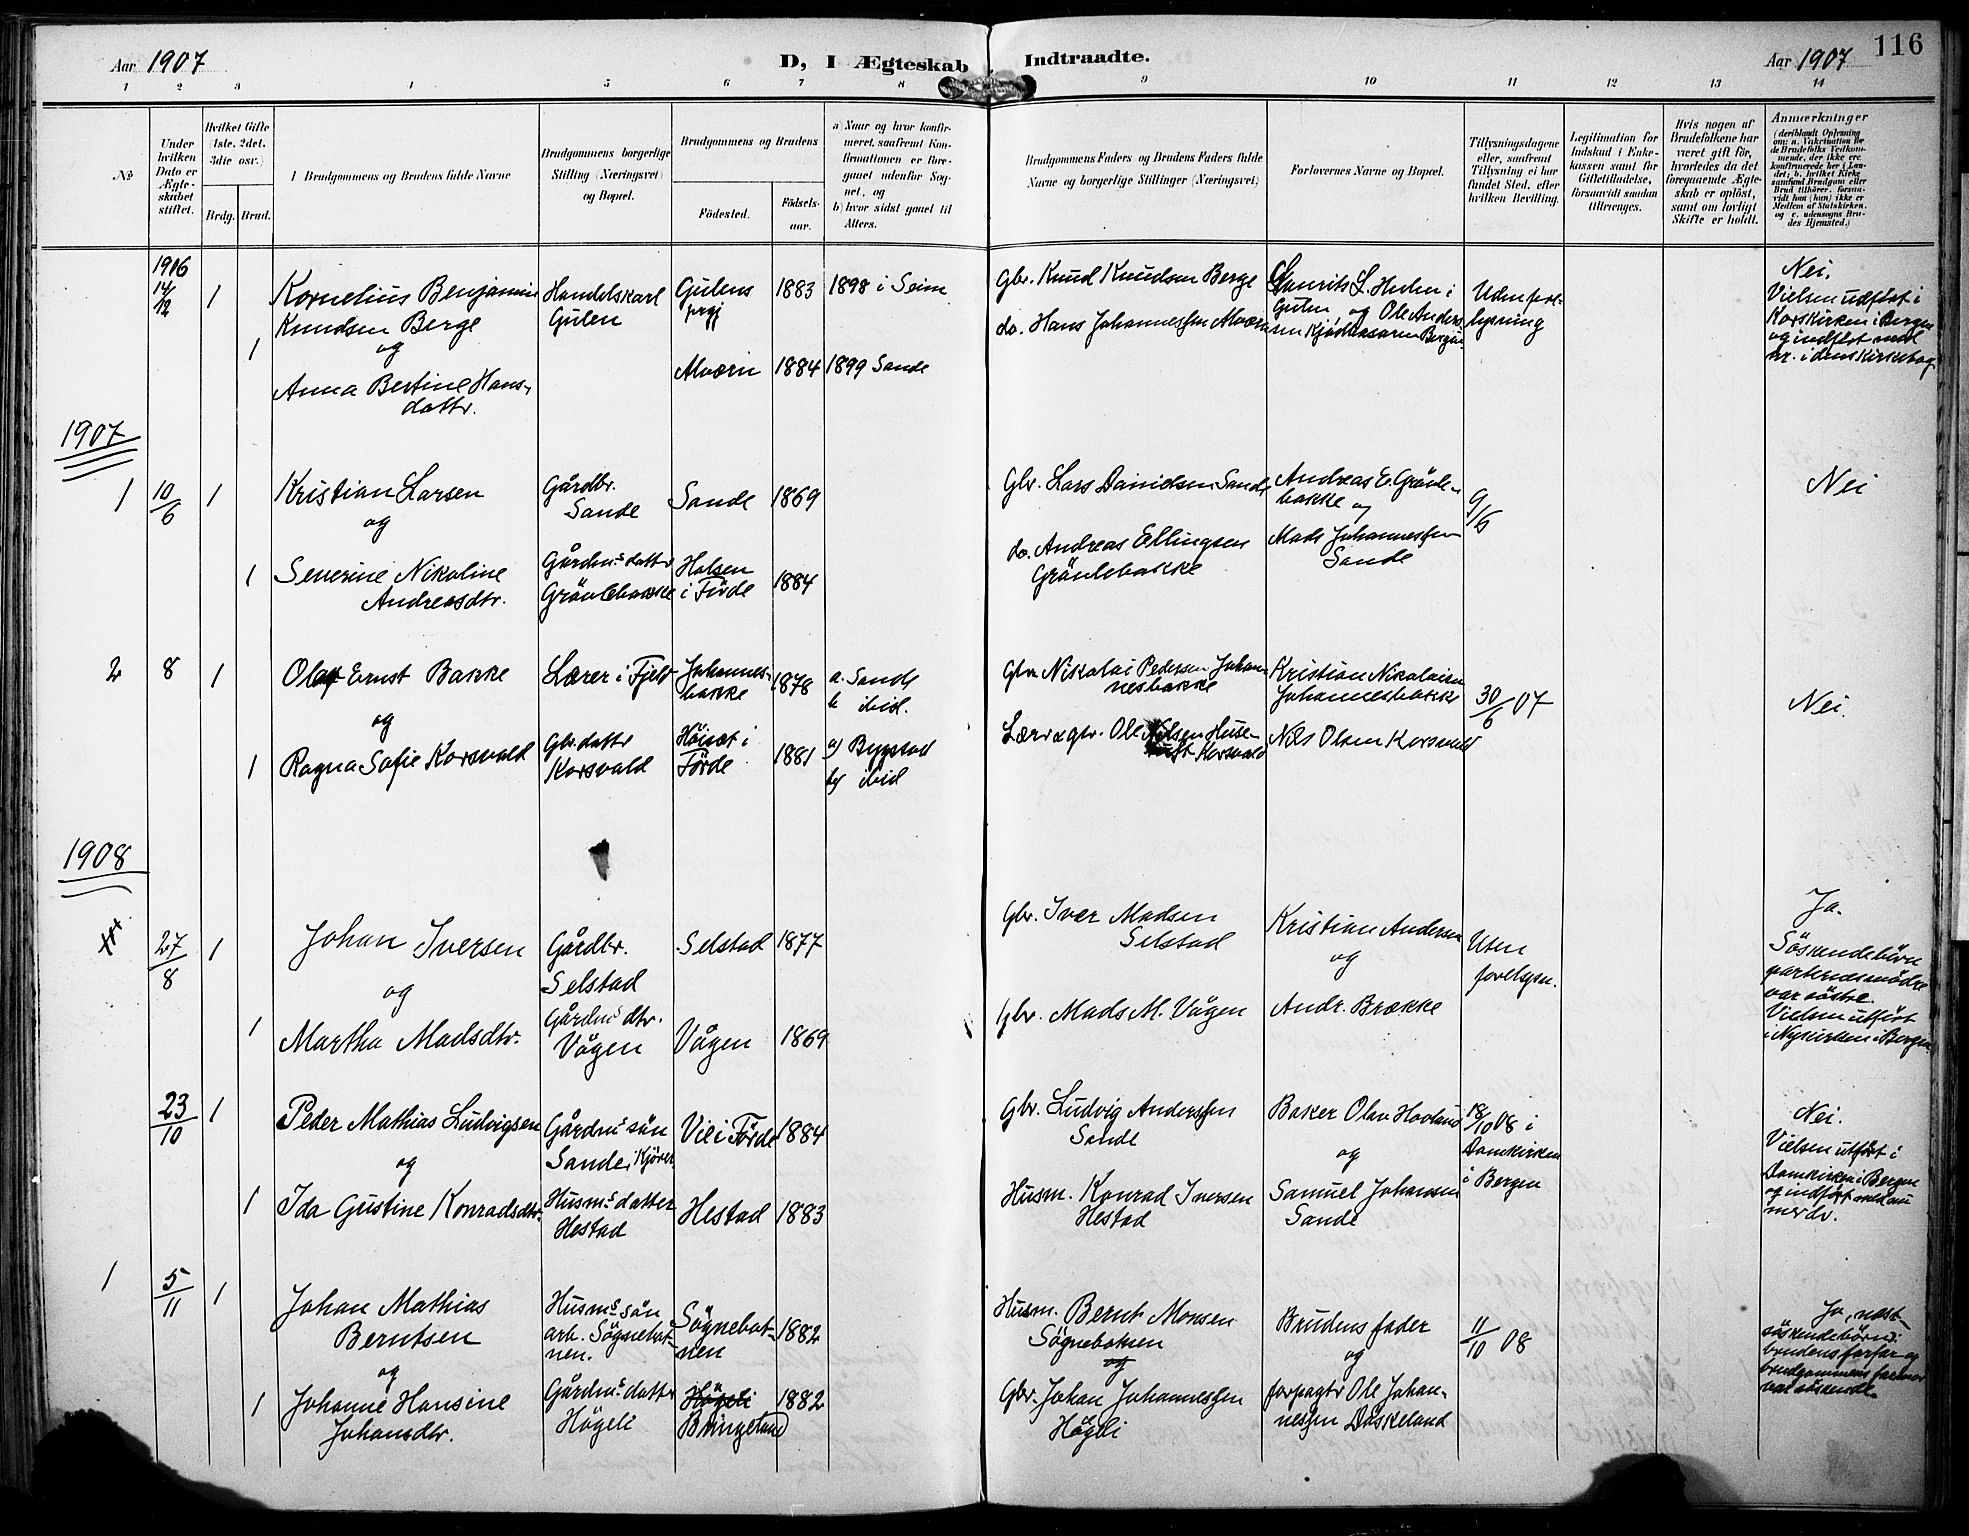 Aar 1907
D, I Ægteskab Indtraadte.
Aar 1907 116
1 2 3 4 5 6 7 8 9 10 11 12 13 14
No
Under hvilken Dato er Ægteskabet stiftet.
Hvilket Gifte (1ste, 2det, 3die osv.)
Brdg. Brud.
Brudgommens og Brudens fulde Navne
Brudgommens borgerlige Stilling (Næringsvei) og Bopæl.
Brudgommens og Brudens
Fødested.
Fødselsaar.
a) Naar og hvor konfirmeret, saafremt Konfirmationen er foregaaet udenfor Sognet, og
b) hvor sidst gaaet til Alters.
Brudgommens Faders og Brudens Faders fulde Navne og borgerlige Stillinger (Næringsvei)
Forlovernes Navne og Bopæl.
Tillysningsdagene eller, saafremt Tillysning ei har fundet Sted, efter hvilken Bevilling.
Legitimation for Indskud i Enkekassen samt for Giftetilladelse, forsaavidt saadan tiltrænges.
Hvis nogen af Brudefolkene har været gift før, hvorledes da det foregaaende Ægteskab er opløst, samt om lovligt Skifte er holdt.
Anmærkninger
(deriblandt Oplysning om: a. Vakcination for de Brudefolks Vedkommende, der ikke ere konfirmerede her i Landet; b. hvilket Kirkesamfund Brudgom eller Brud tilhører, forsaavidt han (hun) ikke er Medlem af Statskirken, og c. udensogns Brudes Hjemsted.)
1906
14/12 1 Kornelius Benjamin Knudsen Berge
Handelskarl Gulen
Gulens prgj 1883 1898 i Seim
Gbr. Knud Knudsen Berge
og
1 Anna Bertine Hansdattr.
Alværn 1884 1899 Sande
do. Hans Johannesen Alværn
Gulen og Ole Anders
Uden forlysning
Nei.
Vielsen udført i
Korskirken i Bergen
og indført med
nr. i dens kirkebog
1907
1 10/6 1 Kristian Larsen
Gårdbr. Sande
Sande 1869
Gbr. Lars Danielsen Sande
Andreas E. Grönlebakke
og
9/6
Nei
og
1 Severine Nikoline Andreasdtr.
Gårdm.s dattr Grönlebakke
Halsen i Förde 1884
do. Andreas Ellingsen Grönlebakke
Mads Johannessen Sande
2 8 1 Olaf Ernst Bakke
Lærer i Fjeld
Johannesbakke 1878
a. Sande
b. ibid.
Gbr. Nikolai Pedersen Johannesbakke
Kristian Nikolaisen Johannesbakke
30/6 07
Nei.
og
1 Ragna Sofie Korsvald
Gbr. dattr Korsvald
Höiset i Förde 1881
a) Bygstad
b) ibid
Lærer &amp; gbr. Ole Nilsen Korsvald
Nils Olsen Korsvald
1908
27/8 1 Johan Iversen
Gårdbr. Selstad
Selstad 1877
Gbr. Iver Madsen Selstad
Kristian Andersen
og
Uten forlysn.
Ja.
Söskendebörn
partenes mödre
var söstre.
Vielsen utfört
i Nykirken i Bergen
og
1 Martha Madsdtr.
Gårdm.s dtr. Vågen
Vågen 1869
Gbr. Mads M. Vågen
Andr. Brække
23/10 1 Peder Mathias Ludvigsen
Gårdm.s sön Sande, Kjörel
Vie i Förde 1884
Gbr. Ludvig Anderssen Sande
Baker Olav Hovland
og
18/10 08 i Domkirken i Bergen
Nei.
Vielsen utfört i
Domkirken i Bergen
og indfört med nu
mer dr.
og
1 Ida Gustine Konradsdtr.
Husm.s datter Hestad
Hestad 1883
Husm. Konrad Iversen Hestad
Samuel Johansen Sande
1 5/11 1 Johan Mathias Berntsen
Husm.s sön arb. Sögnebotnen.
Sögnebotnen 1882
Husm. Bernt Monsen Sögnebotnen
og
Brudens fader
og
11/10 08
Ja, næstsöskendebörn:
brudens farfar og
brudgommens farmor
var söskende
og
1 Johanne Hansine Johansdtr.
Gårdm.s dattr Högeli
Högeli Bringeland 1882
Gbr. Johan Johannessen Högeli
forpagtr Ole Johannessen Daskeland